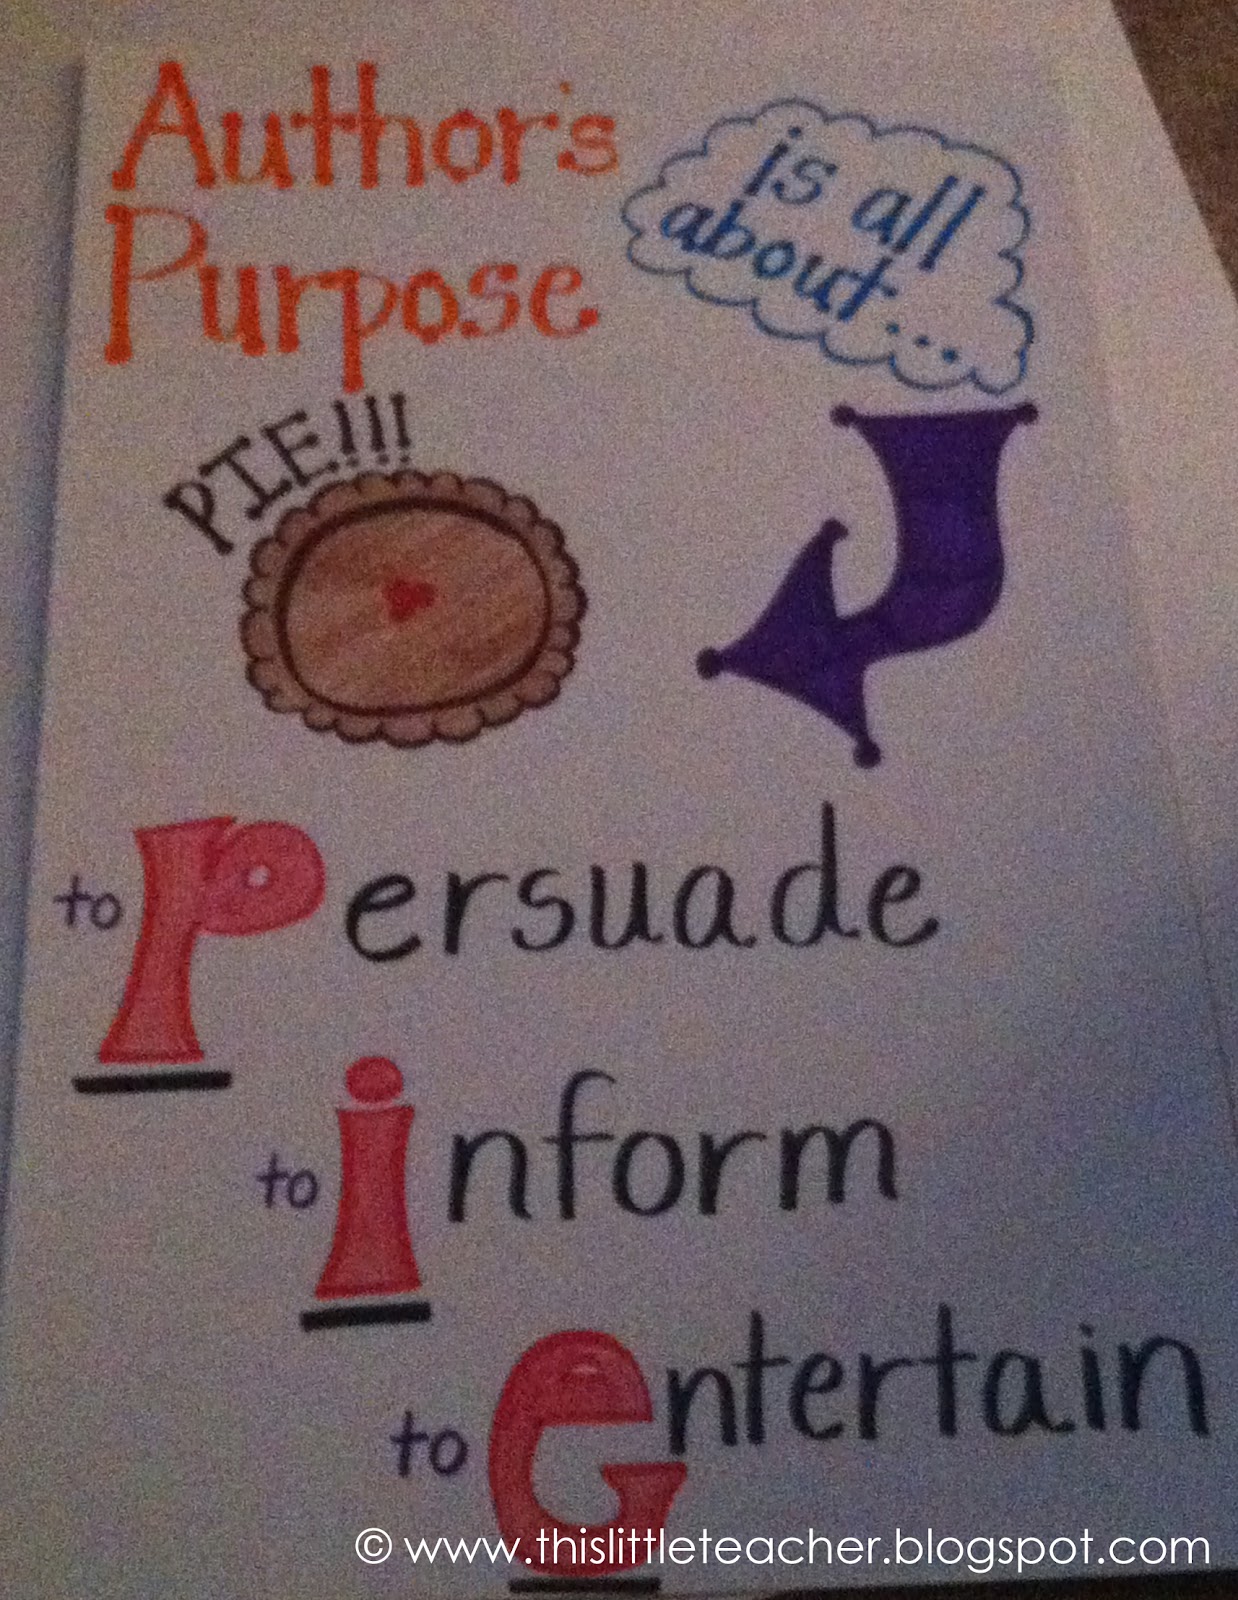 Author's
Purpose
is all
about...
PIE!!!
to Persuade
to inform
to entertain
© www.thislittleteacher.blogspot.com